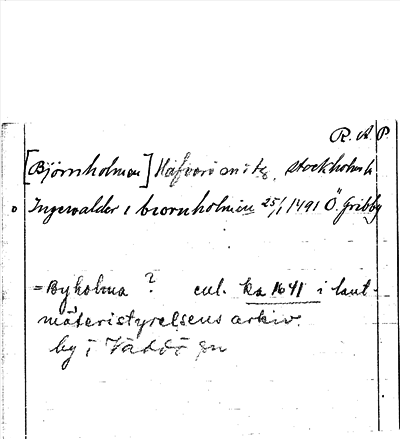 R. A. P.
[Björnholmen] Häfverö Stockholms l.
Ingewalder i biornholmen 25/1 1491 Ö. Gribby
= Byholma ? enl. ka 1641 i lant-
mäteristyrelsens arkiv.
by i Väddö sn